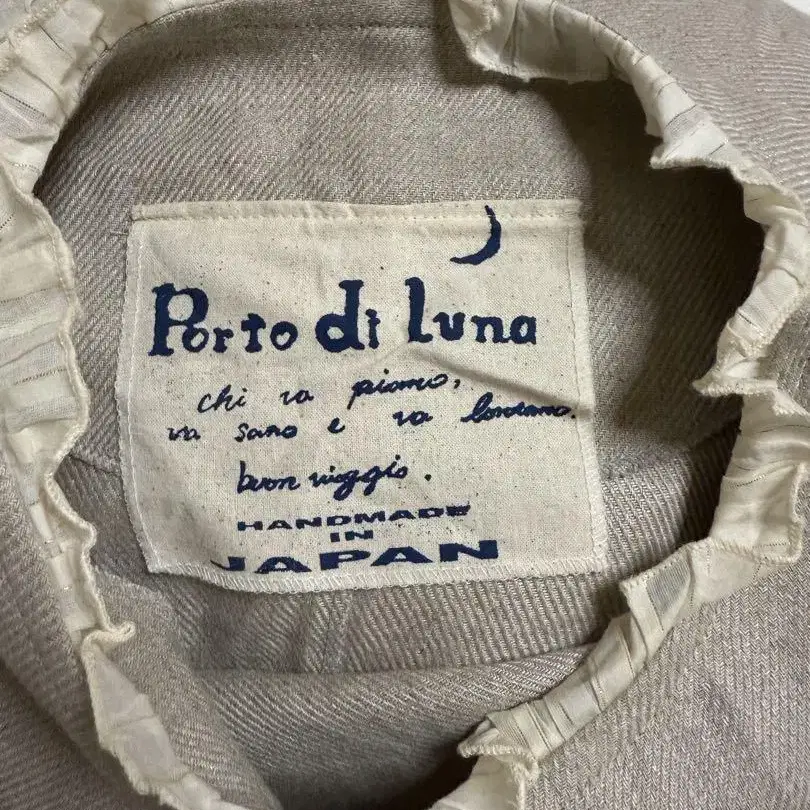 Porto di luna
chi va piano,
va sano e va lontano.
buon viaggio.
HANDMADE
IN
JAPAN